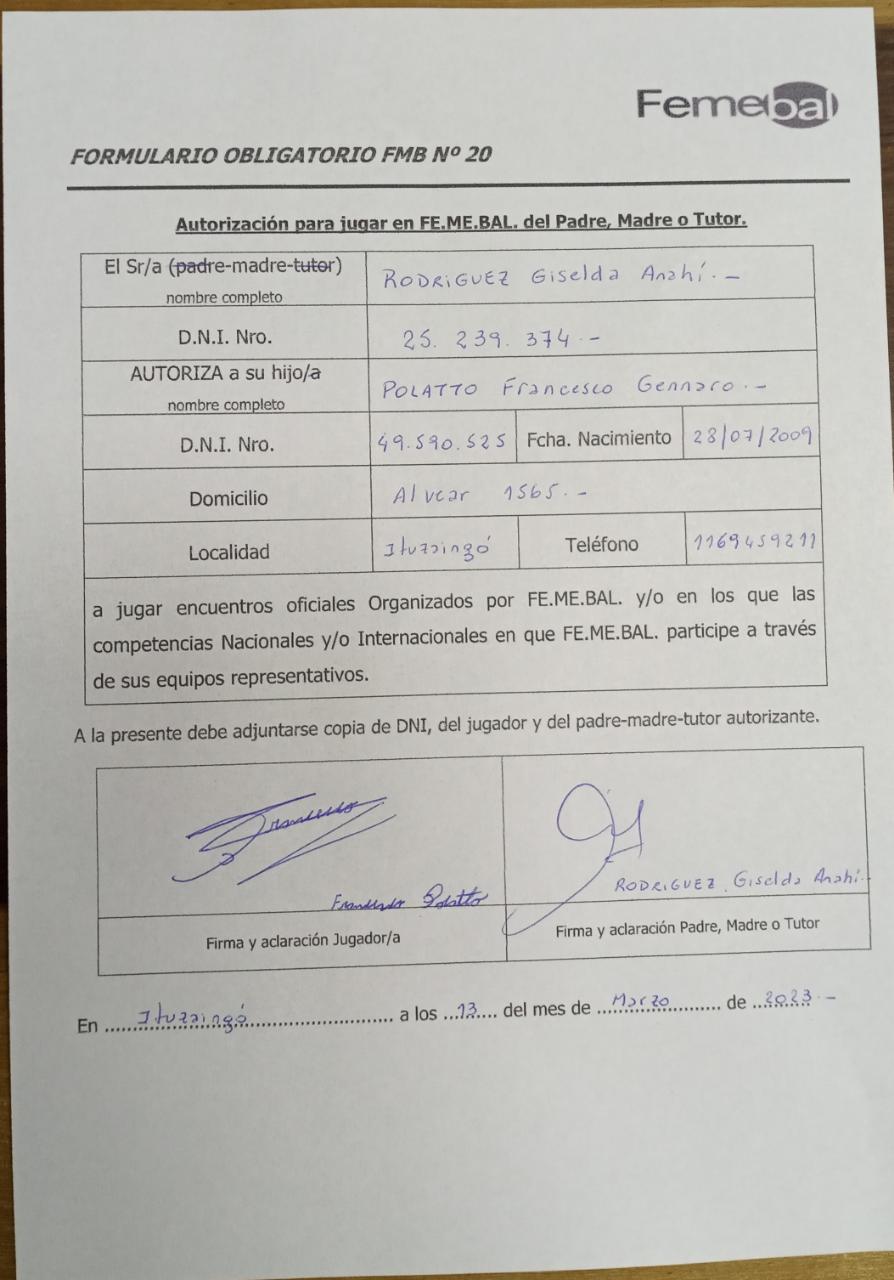 Femebal
FORMULARIO OBLIGATORIO FMB Nº 20
Autorización para jugar en FE.ME.BAL. del Padre, Madre o Tutor.
El Sr/a (padre-madre-tutor) RODRIGUEZ Giselda Anahí.-
nombre completo
D.N.I. Nro. 25.239.374.-
AUTORIZA a su hijo/a POLATTO Francesco Gennaro.-
nombre completo
D.N.I. Nro. 49.590.525 Fcha. Nacimiento 28/07/2009
Domicilio Alvear 1565.-
Localidad Ituzaingó Teléfono 1169459211
a jugar encuentros oficiales Organizados por FE.ME.BAL. y/o en los que las
competencias Nacionales y/o Internacionales en que FE.ME.BAL. participe a través
de sus equipos representativos.
A la presente debe adjuntarse copia de DNI, del jugador y del padre-madre-tutor autorizante.
Francesco
Francesco Polatto RODRIGUEZ Giselda Anahí.
Firma y aclaración Jugador/a Firma y aclaración Padre, Madre o Tutor
En Ituzaingó a los 13 del mes de Marzo de 2023.-